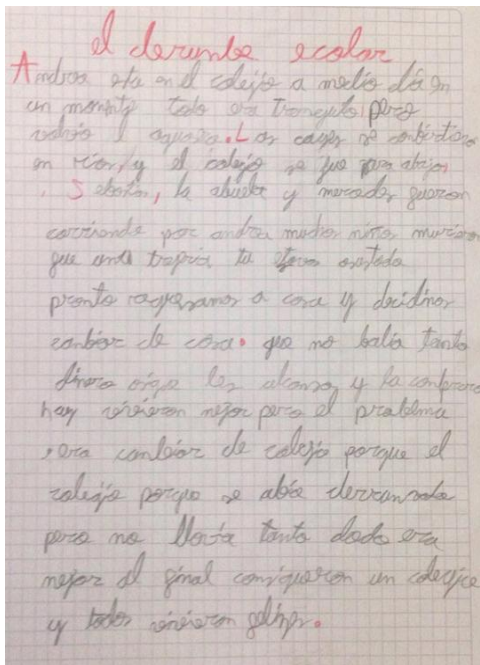 el derunbe ecolar
Andrea sta en el colejio a medio día en
un momento todo era tranquilo, pero
volvio l aguasera. Las cayes se conbirtieron
en rios, y el colegio se fue para abajo,
. Sebastin, la abuela y mercedes fueron
corriendo por andrea muchos niños murieron
que una trajeria tu
pronto ragresamos a casa y decidimos
canbiar de casa. que no balia tanto
dinero les alcanso y la compraron
hay vivieron mejor pero el problema
, era canbiar de colejio porque el
colegio porque se abia derrunvado
pero no llovía tanto dodo era
mejor al final consiguieron un colegio
y todos vivieron felises.